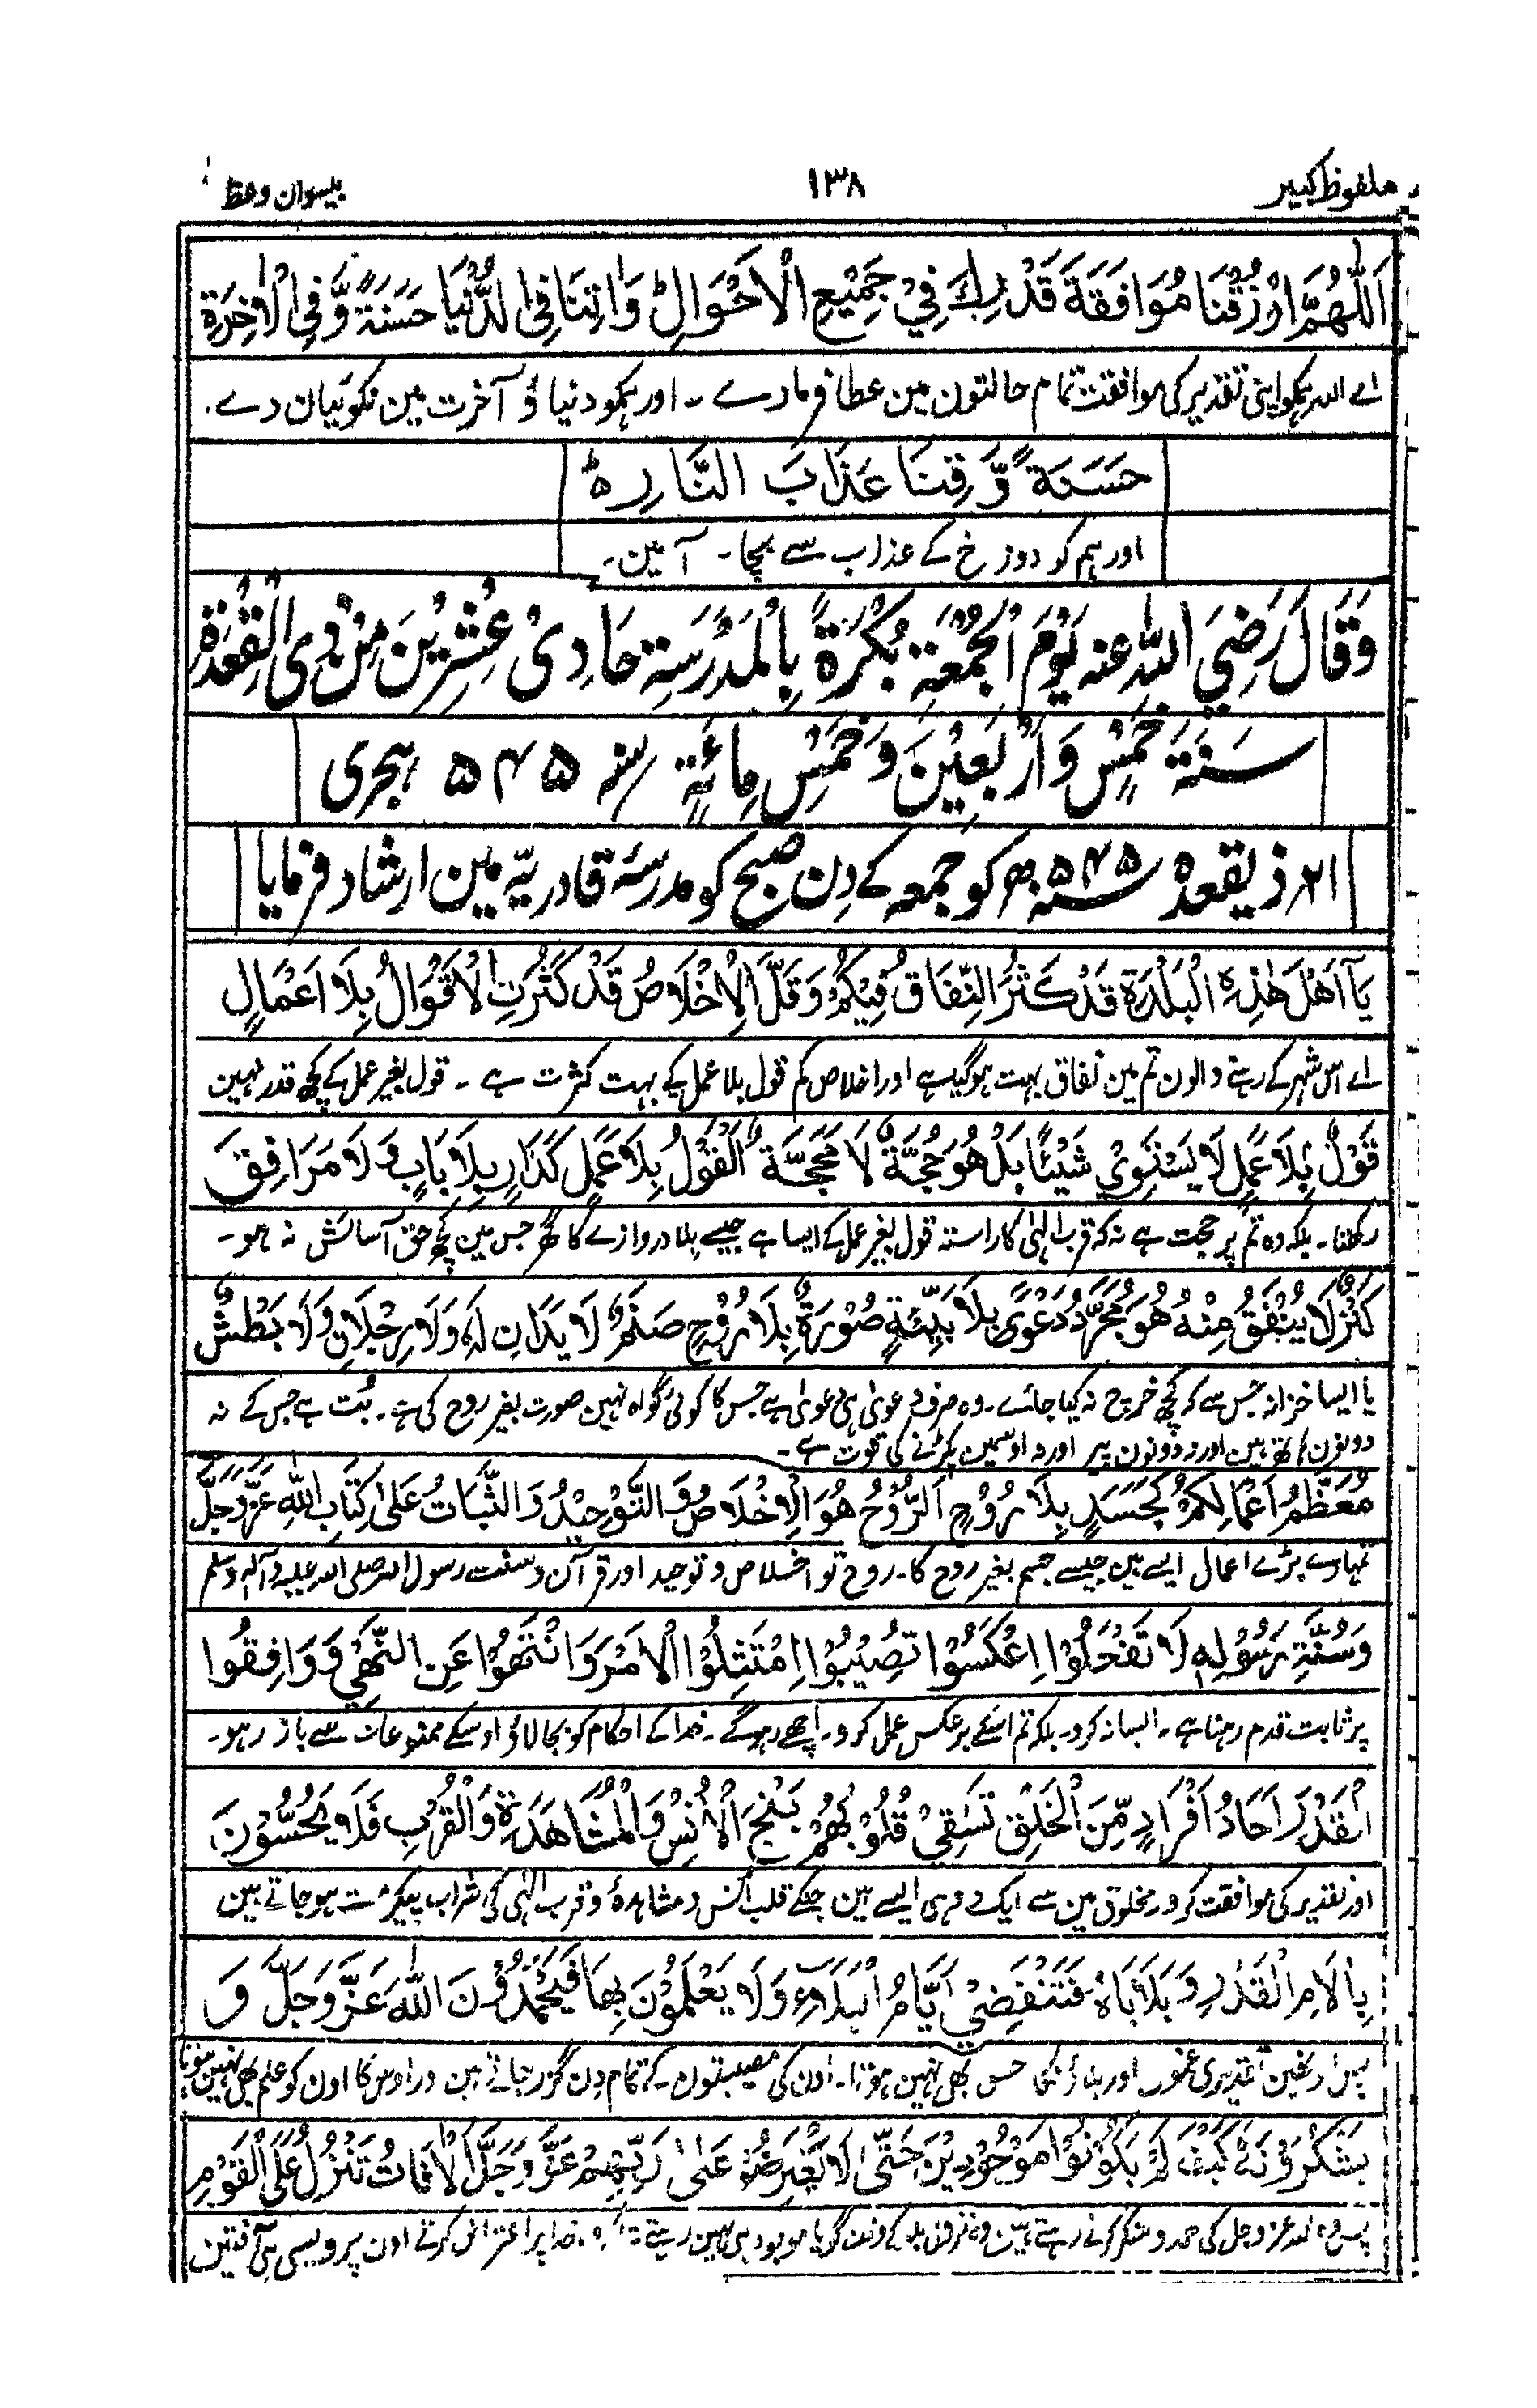 ملفوظ کبیر
۱۳۸
بیسوان وعظ
اَللّٰهُمَّ ارْزُقْنَا مُوَافَقَةَ قَدْرِكَ فِيْ جَمِيْعِ الْاَحْوَالِ وَاٰتِنَا فِی الدُّنْيَا حَسَنَةً وَّفِی الْاٰخِرَةِ
اے اللہ ہمکو اپنی تقدیر کی موافقت تمام حالتون مین عطا فرما دے ۔ اور ہمکو دنیا و آخرت مین نکوئیان دے ۔
حَسَنَةً وَّقِنَا عَذَابَ النَّارِ ہ
اور ہم کو دوزخ کے عذاب سے بچا ۔ آمین ۔
وَقَالَ رَضِيَ اللّٰه عنه يَوْمَ الْجُمْعَةِ بُكْرَةً بِالْمَدْرَسَةِ حَادِیْ عِشْرِيْنَ مِنْ ذِی الْقِعْدَةِ
سَنَةَ خَمْسٍ وَاَرْبَعِيْنَ وَخَمْسِ مِائَةٍ سنہ ۵۴۵ ہجری
۲۱؍ ذیقعدہ سنہ ۵۴۵ھ کو جمعہ کے دِن صبح کو مدرسۂ قادریّہ مین ارشاد فرمایا
يَآ اَهْلَ هٰذِهِ الْبَلْدَةِ قَدْ كَثُرَ النِّفَاقُ فِيْكُمْ وَقَلَّ الْاِخْلَاصُ قَدْ كَثُرَتِ الْاَقْوَالُ بِلَا اَعْمَالٍ
اے اس شہر کے رہنے والون تم مین نفاق بہت ہوگیا ہے اور اخلاص کم قول بلا عمل کے بہت کثرت ہے ۔ قول بغیر عمل کے کچھ قدر نہین
قَوْلٌ بِلَا عَمَلٍ لَا يَسْتَوِيْ شَيْئًا بَلْ هُوَ حُجَّةٌ لَا مَحَجَّةٌ اَلْقَوْلُ بِلَا عَمَلٍ كَدَارٍ بِلَا بَابٍ وَلَا مَرَافِقَ
رکھتا ۔ بلکہ وہ تم پر حجت ہے نہ کہ قرب الٰہی کا راستہ قول بغیر عمل کے ایسا ہے جیسے بلا دروازے کا گھر جس مین کچھ حق آسائش نہ ہو ۔
كَنْزٌ لَا يُنْفَقُ مِنْهُ هُوَ مُجَرَّدُ دَعْوًى بِلَا بَيِّنَةٍ صُوْرَةٌ بِلَا رُوْحٍ صَنَمٌ لَا يَدَانِ لَهٗ وَلَا رِجْلَانِ وَلَا بَطْشٌ
یا ایسا خزانہ جس سے کہ کچھ خرچ نہ کیا جائے ۔ وہ صرف دعویٰ ہی دعویٰ ہے جس کا کوئی گواہ نہین صورت بغیر روح کی ہے ۔ بُت ہے جس کے نہ
دونون ہاتھ ہین اور نہ دونون پیر اور نہ اوسمین پکڑنے کی قوت ہے ۔
مُعَظَّمُ اَعْمَالِكُمْ كَجَسَدٍ بِلَا رُوْحٍ اَلرُّوْحُ هُوَ الْاِخْلَاصُ وَالتَّوْحِيْدُ وَالثَّبَاتُ عَلٰى كِتَابِ اللّٰهِ عَزَّ وَجَلَّ
تمہارے بڑے اعمال ایسے ہین جیسے جسم بغیر روح کا ۔ روح تو اخلاص و توحید اور قرآن و سنت رسول اللہ صلی اللہ علیہ وآلہ وسلم
وَسُنَّةِ رَسُوْلِهٖ لَا تَفْعَلُوْا اِعْكِسُوْا تُصِيْبُوْا اِمْتَثِلُوْا الْاَمْرَ وَانْتَهُوْا عَنِ النَّهْيِ وَوَافِقُوا
پر ثابت قدم رہنا ہے ۔ ایسا نہ کرو ۔ بلکہ تم اسکے برعکس عمل کرو ۔ اچھے رہوگے ۔ خدا کے احکام کو بجا لاؤ اوسکے ممنوعات سے باز رہو ۔
الْقَدْرَ اٰحَادُ اَفْرَادٍ مِّنَ الْخَلْقِ تُسْقٰى قُلُوْبُهُمْ بَنْجَ الْاُنْسِ وَالْمُشَاهَدَةِ وَالْقُرْبِ فَلَا يَحُسُّوْنَ
اور تقدیر کی موافقت کرو ۔ مخلوق مین سے ایک دو ہی ایسے ہین جنکے قلب اُنس و مشاہدہ و قرب الٰہی کی شراب پیکر مست ہو جاتے ہین
بِاٰلَامِ الْقَدْرِ وَبَلَايَاهُ فَتَنْقَضِيْ اَيَّامُ الْبَلَاءِ وَلَا يَعْلَمُوْنَ بِهَا فَيَحْمَدُوْنَ اللّٰهَ عَزَّ وَجَلَّ وَ
پس اونھین تقدیری غمون اور بلاؤنکی حس بھی نہین ہوتا ۔ اون کی مصیبتون کے تمام دن گزر جاتے ہین اور اوس کا اون کو علم بھی نہین ہوتا
يَشْكُرُوْنَهٗ كَيْفَ لَمْ يَكُوْنُوْا مَوْجُوْدِيْنَ حَتّٰى لَا يَعْتَرِضُوْا عَلٰى رَبِّهِمْ عَزَّ وَجَلَّ الْاٰفَاتُ تَنْزِلُ عَلَى الْقَوْمِ
پس وہ اللہ عز وجل کی حمد و شکر کرتے رہتے ہین وہ نزول بلا کے وقت گویا موجود ہی نہین رہتے خدا پر اعتراض کرتے اون پر ویسی ہی آفتین